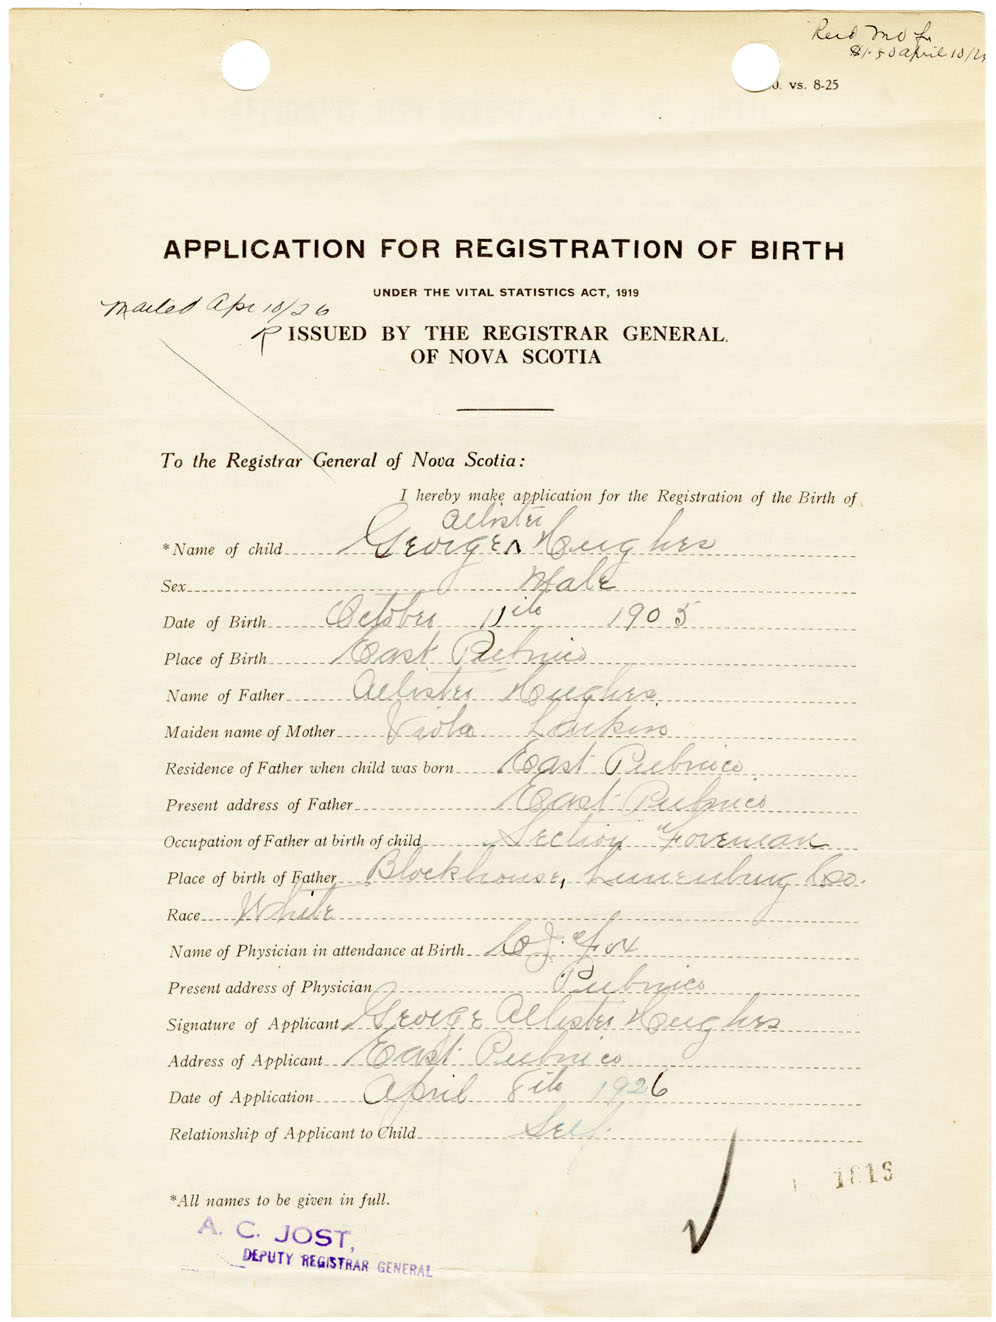 Recd M O for
$1.50 april 10/26
vs. 8-25
APPLICATION FOR REGISTRATION OF BIRTH
UNDER THE VITAL STATISTICS ACT, 1919
mailed Apr 10/26
ISSUED BY THE REGISTRAR GENERAL
OF NOVA SCOTIA
To the Registrar General of Nova Scotia:
I hereby make application for the Registration of the Birth of
Allister
*Name of child George ^ Hughes
Sex Male
Date of Birth October 11th 1905
Place of Birth East Pubnico
Name of Father Allister Hughes
Maiden name of Mother Viola Larkin
Residence of Father when child was born East Pubnico
Present address of Father East Pubnico
Occupation of Father at birth of child Section Foreman
Place of birth of Father Blockhouse, Lunenburg Co.
Race White
Name of Physician in attendance at Birth C J. Fox
Present address of Physician Pubnico
Signature of Applicant George Allister Hughes
Address of Applicant East Pubnico
Date of Application April 8th 1926
Relationship of Applicant to Child Self
1819
*All names to be given in full.
A. C. JOST,
DEPUTY REGISTRAR GENERAL